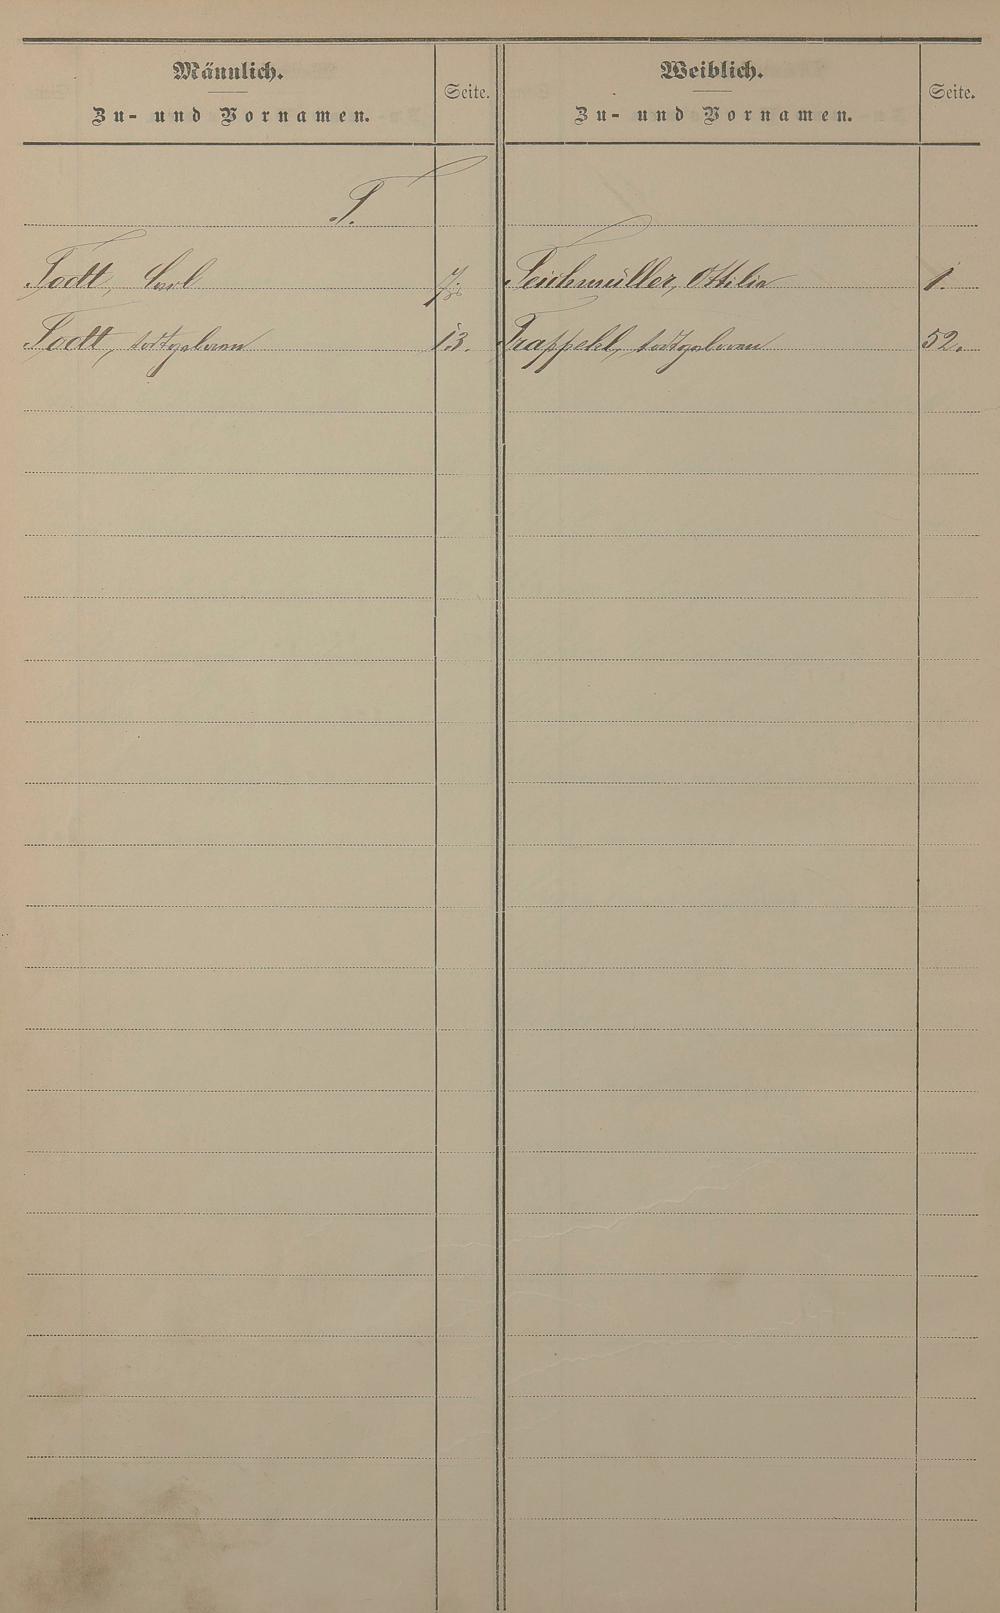 Männlich.
Zu- und Vornamen.
Seite.
Weiblich.
Zu- und Vornamen.
Seite.
T.
Todt, Carl 7.
Teichmüller, Ottilie 1.
Todt, todtgeboren 13.
Trappehl, todtgeboren 52.